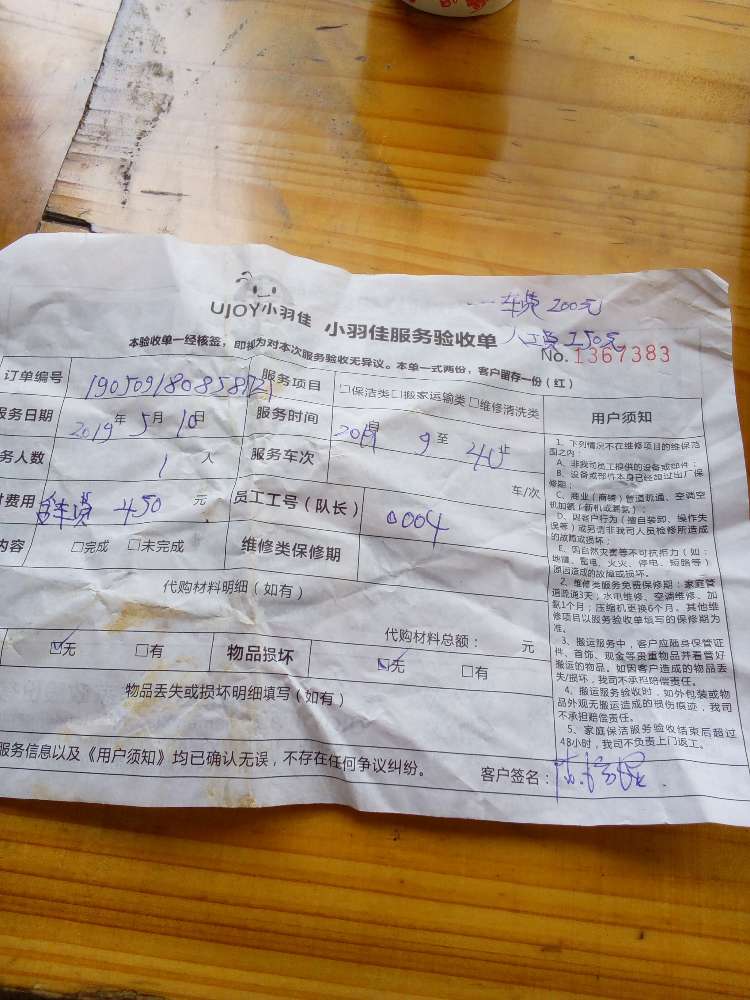 车费 200元
UJOY小羽佳 小羽佳服务验收单 人工费 250元
No. 1367383
本验收单一经核签，即视为对本次服务验收无异议。本单一式两份，客户留存一份（红）
订单编号 服务项目 □保洁类□搬家运输类□维修清洗类 用户须知
服务日期 2019年 5月 10日 服务时间 至 止
务人数 1 人 服务车次 车/次
费用 450 元 员工工号（队长） 0004
内容 □完成 □未完成 维修类保修期
代购材料明细（如有）
代购材料总额： 元
☑无 □有 物品损坏 ☑无 □有
物品丢失或损坏明细填写（如有）
服务信息以及《用户须知》均已确认无误，不存在任何争议纠纷。 客户签名：
1、下列情况不在维修项目的维保范
围之内：
A、非我司员工提供的设备或部件；
B、设备或部件本身已经超过出厂保
修期；
C、商业（商铺）管道疏通、空调空
机加氨（新机或漏氨）；
D、因客户行为（擅自装卸、操作失
误等）或另请非我司人员检修所造成
的故障或损坏；
E、因自然灾害等不可抗拒力（如：
地震、雷电、火灾、停电、短路等）
原因造成的故障或损坏。
2、维修类服务免费保修期：家庭管
道疏通3天；水电维修、空调维修、加
氨1个月；压缩机更换6个月。其他维
修项目以服务验收单填写的保修期为
准。
3、搬运服务中，客户应随身保管证
件、首饰、现金等贵重物品并看管好
搬运的物品。如因客户造成的物品丢
失/损坏，我司不承担赔偿责任。
4、搬运服务验收时，如外包装或物
品外观无搬运造成的损伤痕迹，我司
不承担赔偿责任。
5、家庭保洁服务验收结束后超过
48小时，我司不负责上门返工。